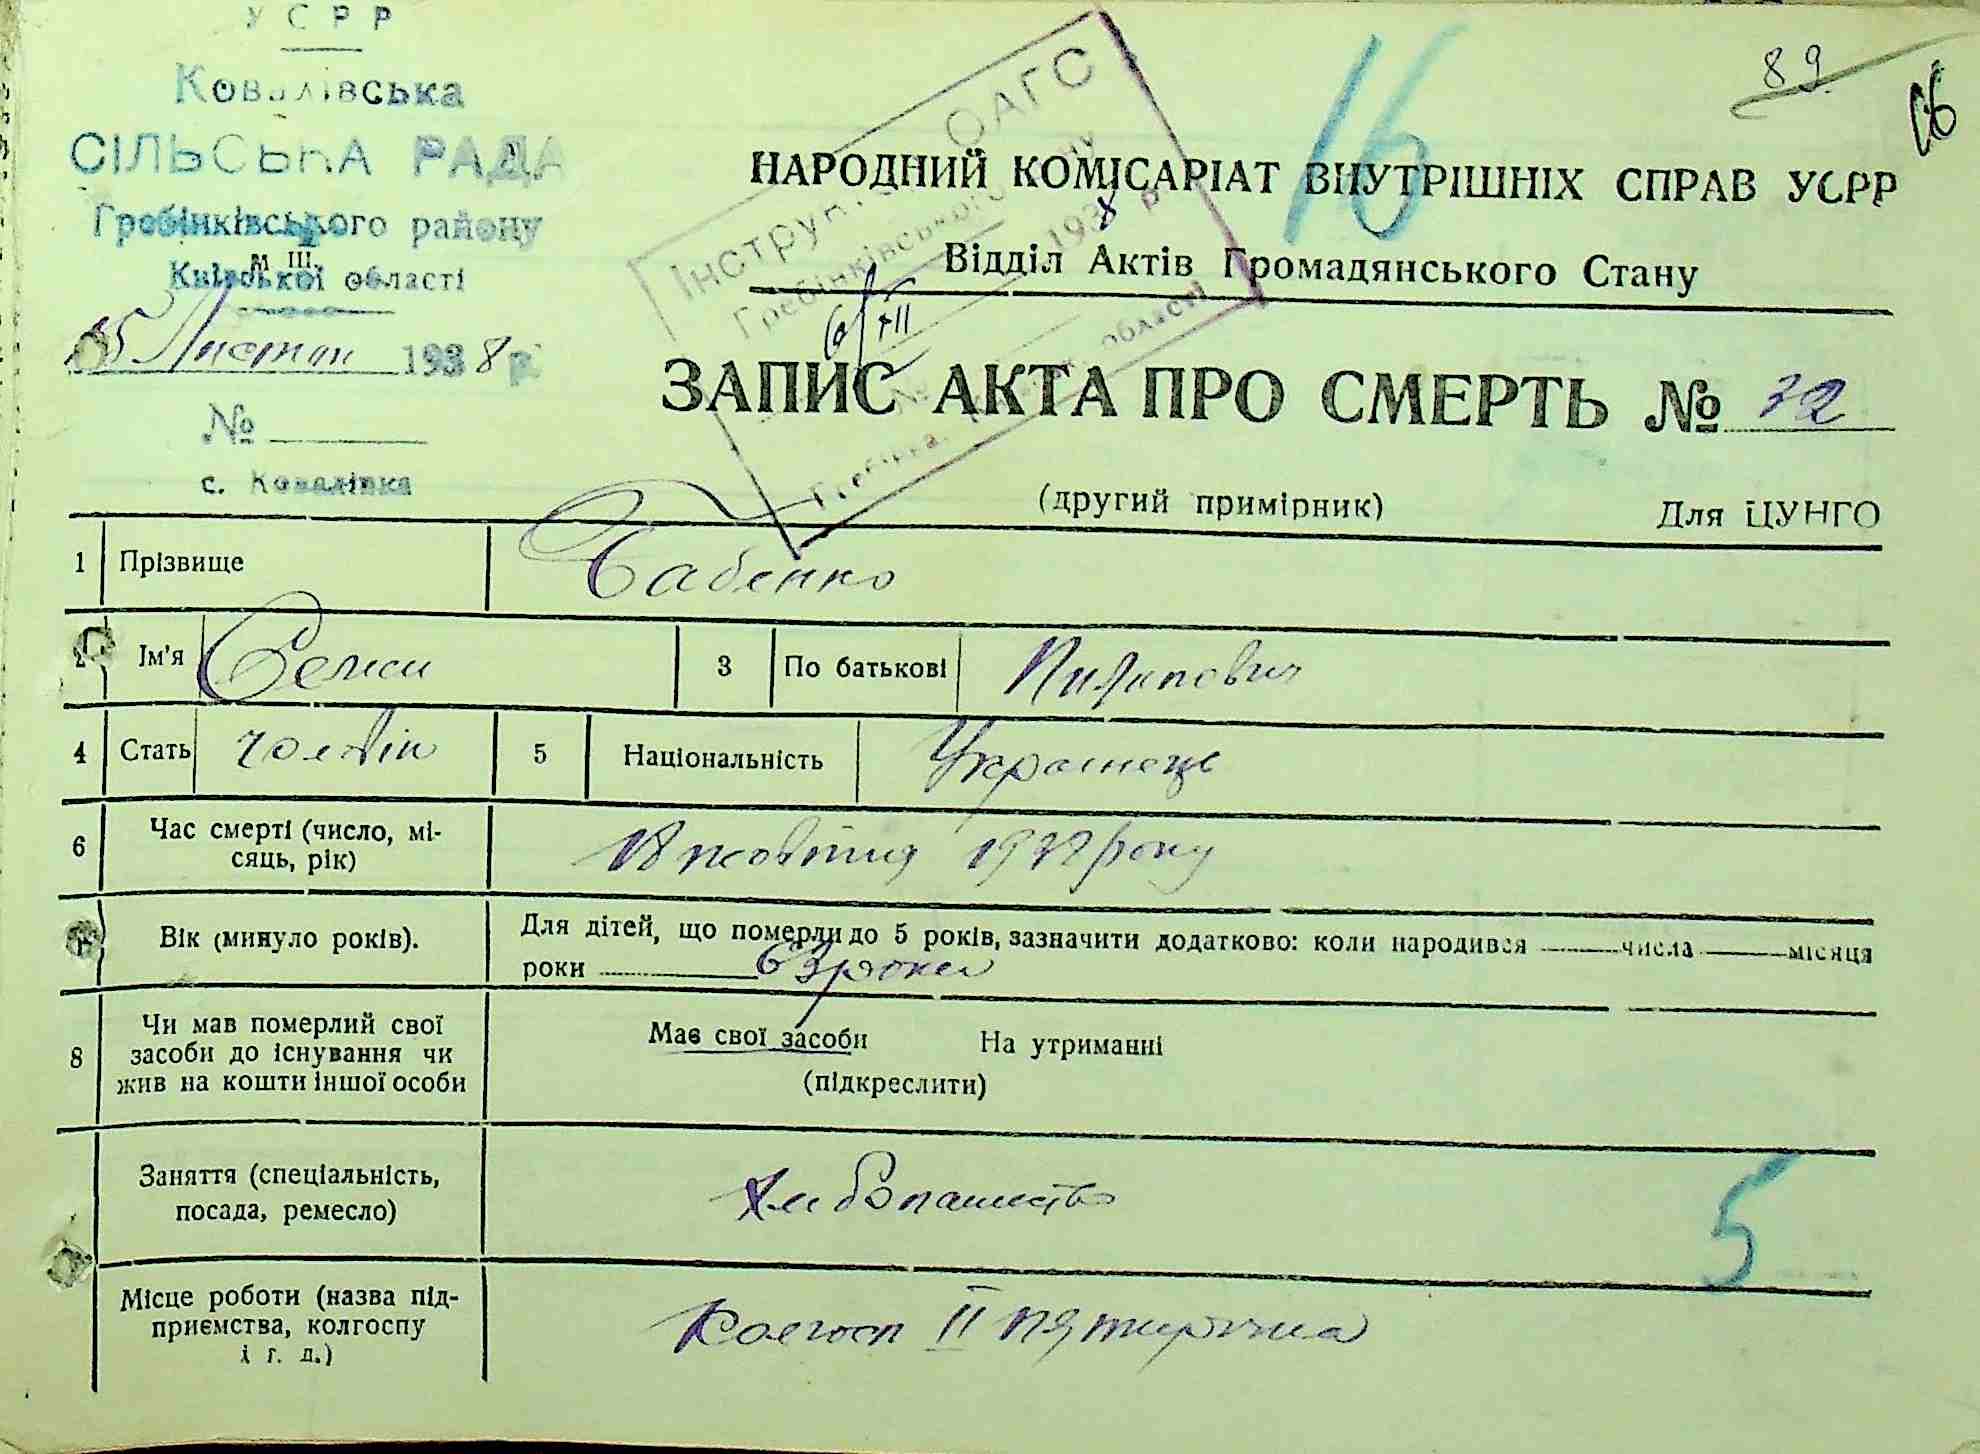 УСРР
Ковалівська
СІЛЬСЬКА РАДА
Гребінківського району
м III.
Київської області
15 Листоп 1938 р.
№
с. Ковалівка
ОАГС
Гребінківського
193 р
области
6/XII
16
89
НАРОДНИЙ КОМІСАРІАТ ВНУТРІШНІХ СПРАВ УСРР
Відділ Актів Громадянського Стану
ЗАПИС АКТА ПРО СМЕРТЬ № 32
(другий примірник) Для ЦУНГО
1 Прізвище Бабенко
2 Ім'я Семен 3 По батькові Пилипович
4 Стать чоловік 5 Національність Українець
6 Час смерті (число, мі-
сяць, рік) 18 жовтня 1938 року
Вік (минуло років). Для дітей, що померли до 5 років, зазначити додатково: коли народився числа місяця
роки 63 роки
8 Чи мав померлий свої
засоби до існування чи
жив на кошти іншої особи
Має свої засоби На утриманні
(підкреслити)
Заняття (спеціальність,
посада, ремесло) Хлібопашество
5
Місце роботи (назва під-
приємства, колгоспу
і г. д.) Колгосп II пятирічка